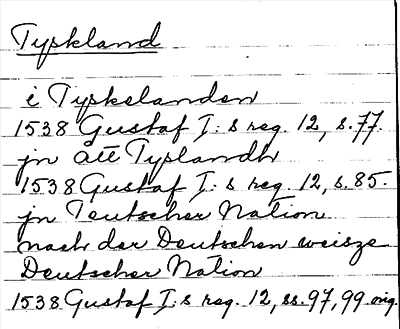 Tyskland
i Tyskelanden
1538 Gustaf I:s reg. 12, s. 77.
jn ått Tysslandh
1538 Gustaf I:s reg. 12, s. 85.
jn Teutscher Nation
nach der Deutschen weisze
Deutscher Nation
1538 Gustaf I:s reg. 12, ss. 97, 99 orig.